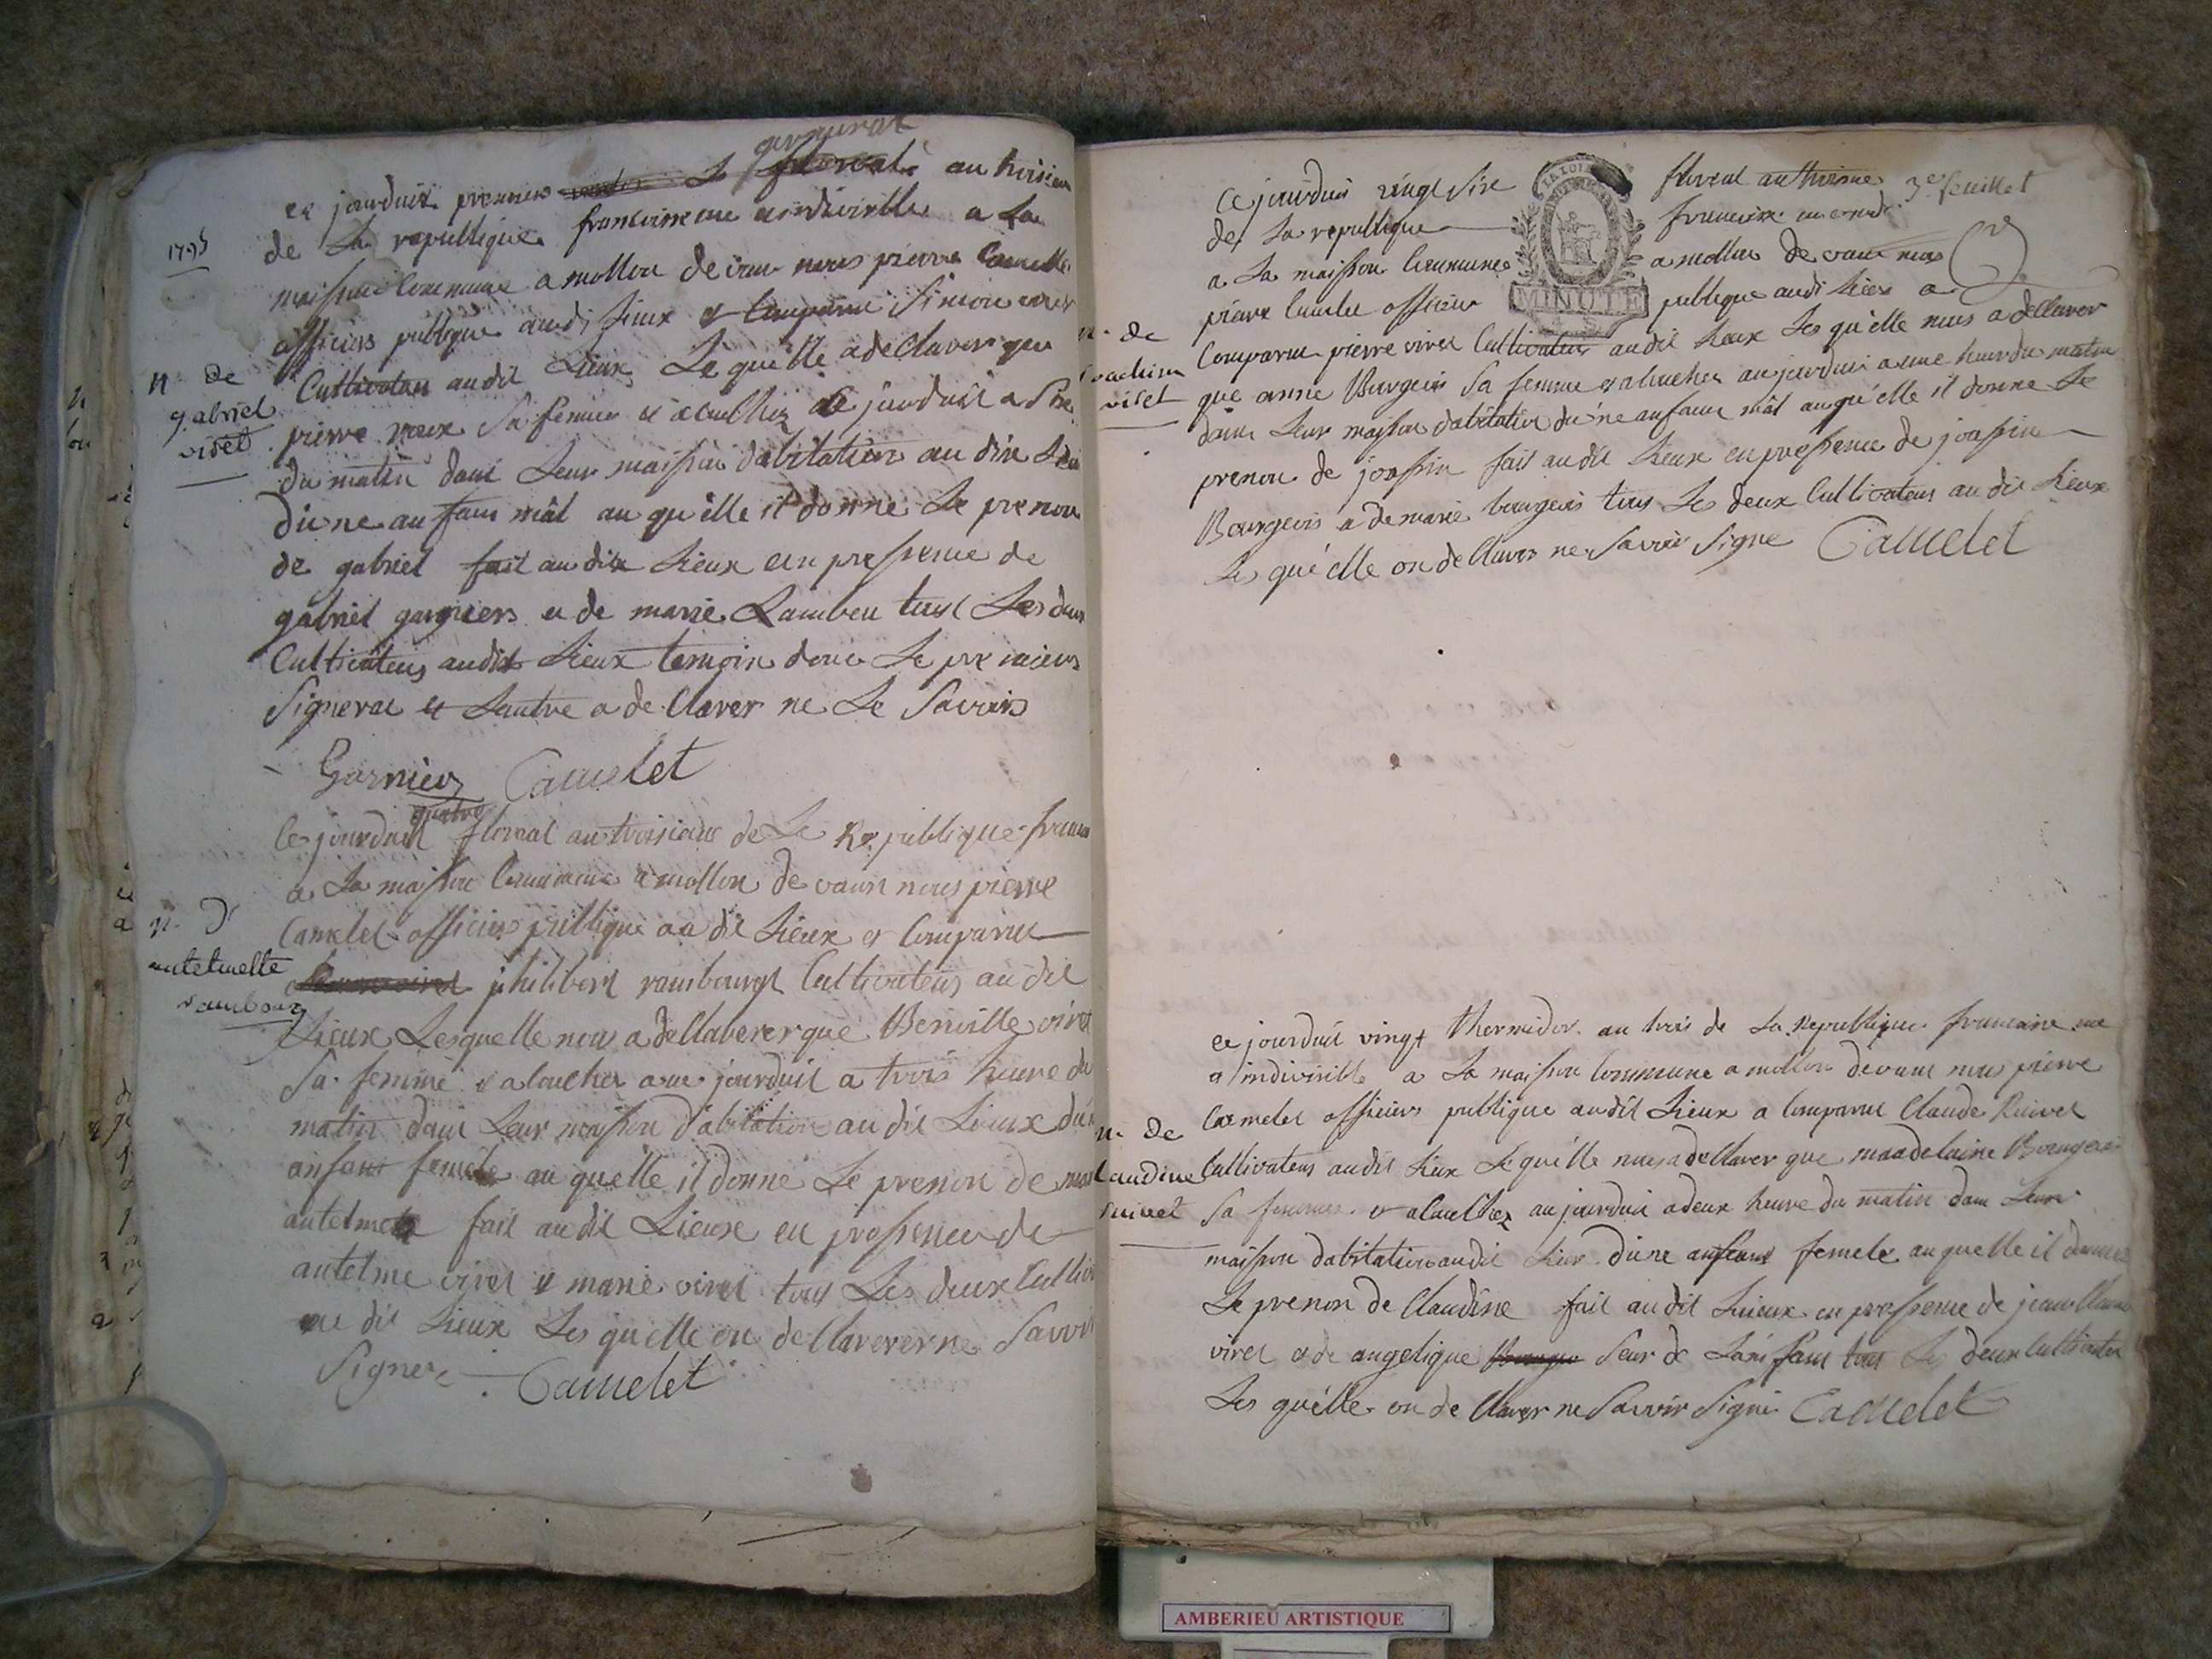 germinal
ce jourduit premier le au troisieme
1795
de la republique francoisse une e indivisible a la
maisson Commune a mollon devant nous pierre Camelet
officiers publique audi Lieux et Comparu Simon viret
Cultivateu audit Lieux Le quelle a declarer que
n. de
gabriel
viret
pierre roux Sa femme et acouchez ce jourduit a Six
du matin dans Leur maisson dabitation au dix Lieu
du ne anfans mâl au qu'elle il donne Le prenon
de gabriel fait au dit Lieux en pressence de
gabriel garniers e de marie Lambeu tous Les deux
Cultivateus audit Lieux temoin donc Le premiers
Signerat et Lautre a declarer ne Le Savoirs
Garniers Camelet
quatre
Ce jourduit floreal au troisieme de La Republique francoi
a La maisson Commune a mollon de vant nous pierre
Camelet officiers publique au dit Lieux et Comparut
n. d'
antelmette
rambourg
philibert rambourgt Cultivateus au dit
Lieux Lesquelle nous a dellaverer que Benoitte viret
Sa femme e alouchez au jourduit a trois heure du
matin dans Leur maisson dabitation au dit Lieux du
anfant femele au quelle il donne Le prenon de
antelmete fait au dit Lieux en pressence de
antelme viret e marie viret tous Les deux Cultiv
au dit Lieux Les quelle on dellaverer ne Savoir
Signer Camelet
3e feuillet
Ce jourduit vingt Six floreal au troisieme
de La republique francoise
LA LOI
MINUTE
a La maisson Commune a mollon de vant nous
piere Camelet officier publique audi Lieux a
n. de
viret
Comparu pierre viret Cultivateur au dit Lieux Les qu'elle nous a dellarer
que anne Burgeois Sa femme et alouchez au jourduit a une heur du matin
dans Leur maisson dabitation du ne anfans mâl au qu'elle il donne Le
prenon de joassin fait au dit Lieux en pressence de joassin
Bourgeois e de marie bourgeois tous Les deux Cultivateus au dit Lieux
Les qué elle on dellarer ne Savoir Signe Camelet
ce jourduit vingt thermidor au trois de La Republique francaine une
e indivisible a La maisson Commune a mollon devant nous pierre
Camelet officiers publique audit Lieux a Comparut Claude Ruivet
n. de
laudine
ruivet
Cultivateus audit Lieux Le quelle nous a dellarer que maadelaine Bourgeois
Sa femme et alouchez au jourduit a deux heure du matin dans Leur
maisson dabitation audit Lieu du ne anfant femele au quelle il donne
Le prenon de Claudine fait au dit Lieux en pressence de jean
viret e de angelique Seur de Lanfans tous Les deux Cultivateu
Les quelle on de Clarer ne Savoir Signé Camelet
AMBERIEU ARTISTIQUE